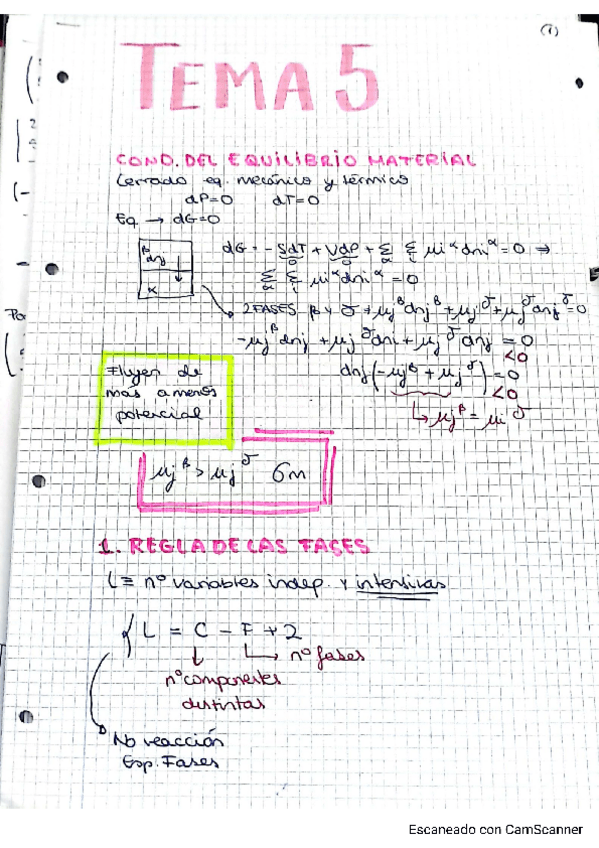 (1)
TEMA 5
COND. DEL EQUILIBRIO MATERIAL
Cerrado eq. mecánico y térmico
dP=0 dT=0
Eq → dG=0
β
dnj
α
dG = -SdT + VdP + Σα Σi μi^α dni^α = 0 ⇒
0 0
Σα Σi μi^α dni^α = 0
2 FASES β y δ → μj^β dnj^β + μj^δ + μj^δ dnj^δ = 0
-μj^β dnj + μj^δ dni + μj^δ dnj = 0
<0
dnj (-μj^β + μj^δ) = 0
<0
↳ μj^β = μi^δ
Fluyen de
más a menos
potencial
μj^β > μj^δ
1. REGLA DE LAS FASES
L ≡ nº variables indep. y intensivas
L = C - F + 2
nº fases
nº componentes
distintas
No reacción
Esp. Fases
Escaneado con CamScanner